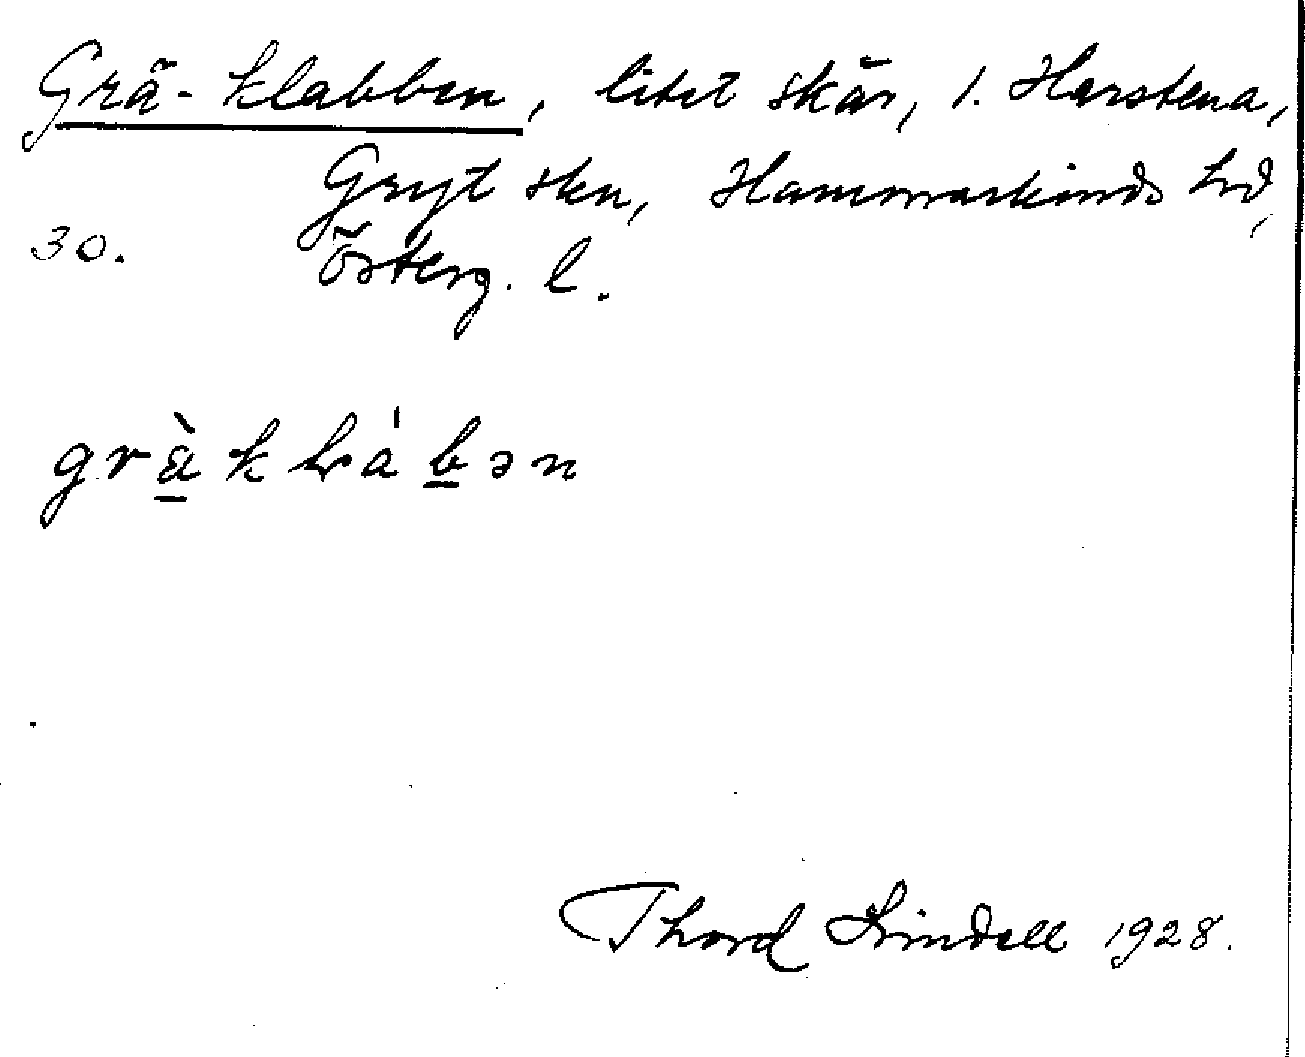 Grå-klabben, litet skär, 1. Harstena,
Gryt skn, Hammarkinds hd,
30. Österg. l.
Thord Lindell 1928.